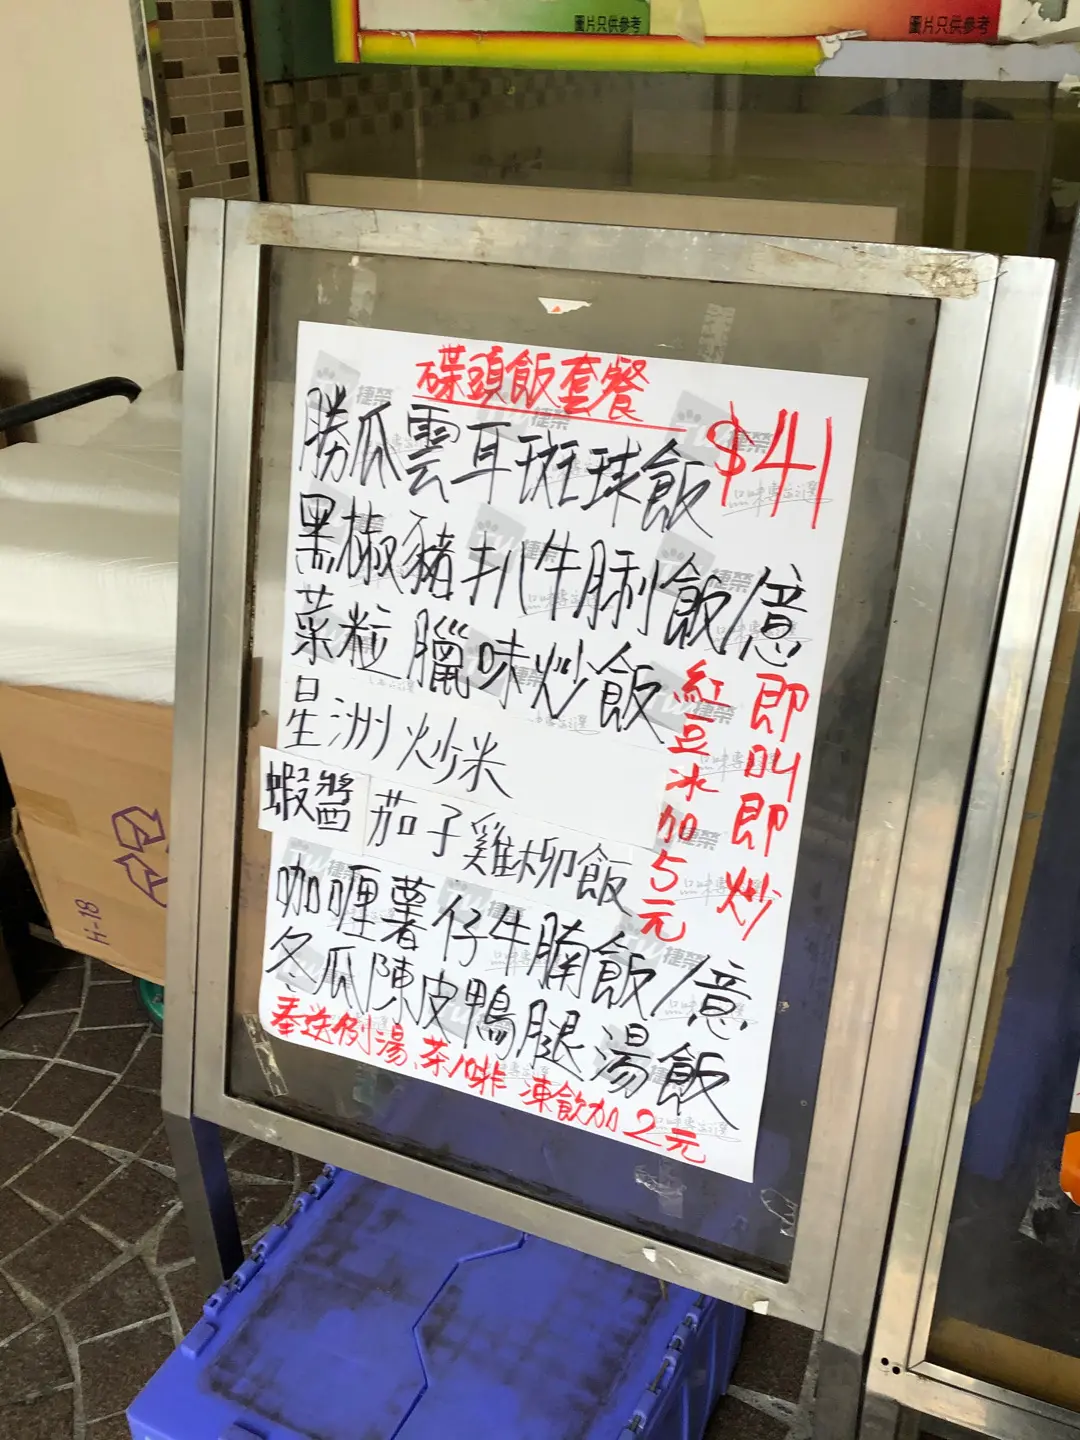 圖片只供參考
圖片只供參考
碟頭飯套餐
$41
勝瓜雲耳斑球飯
黑椒豬扒牛脷飯/意
菜粒臘味炒飯
星洲炒米
蝦醬茄子雞柳飯
咖喱薯仔牛腩飯/意
冬瓜陳皮鴨腿湯飯
紅豆冰加5元
即叫即炒
奉送例湯、茶/啡 凍飲加2元
捷榮
H-18